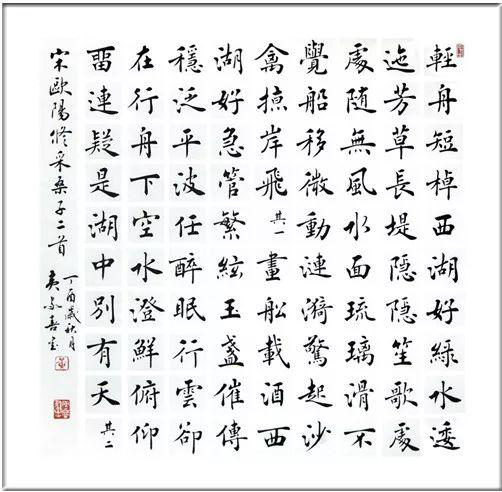 輕舟短棹西湖好綠水逶
迤芳草長堤隱隱笙歌處
處随無風水面琉璃滑不
覺船移微動漣漪驚起沙
禽掠岸飛其一畫舩載酒西
湖好急管繁絃玉盞催傳
穩泛平波任醉眠行雲卻
在行舟下空水澄鮮俯仰
畱連疑是湖中別有天其二
宋歐陽修采桑子二首
丁酉歲秋月